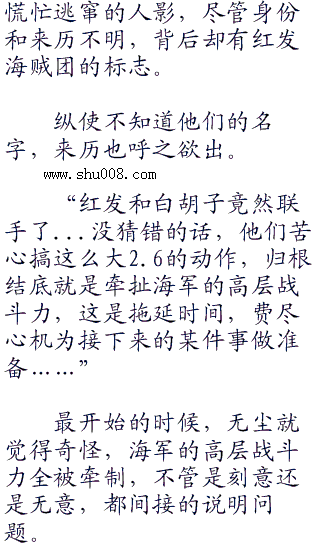 慌忙逃窜的人影，尽管身份
和来历不明，背后却有红发
海贼团的标志。
纵使不知道他们的名
字，来历也呼之欲出。
www.shu008.com
“红发和白胡子竟然联
手了...没猜错的话，他们苦
心搞这么大2.6的动作，归根
结底就是牵扯海军的高层战
斗力，这是拖延时间，费尽
心机为接下来的某件事做准
备……”
最开始的时候，无尘就
觉得奇怪，海军的高层战斗
力全被牵制，不管是刻意还
是无意，都间接的说明问
题。